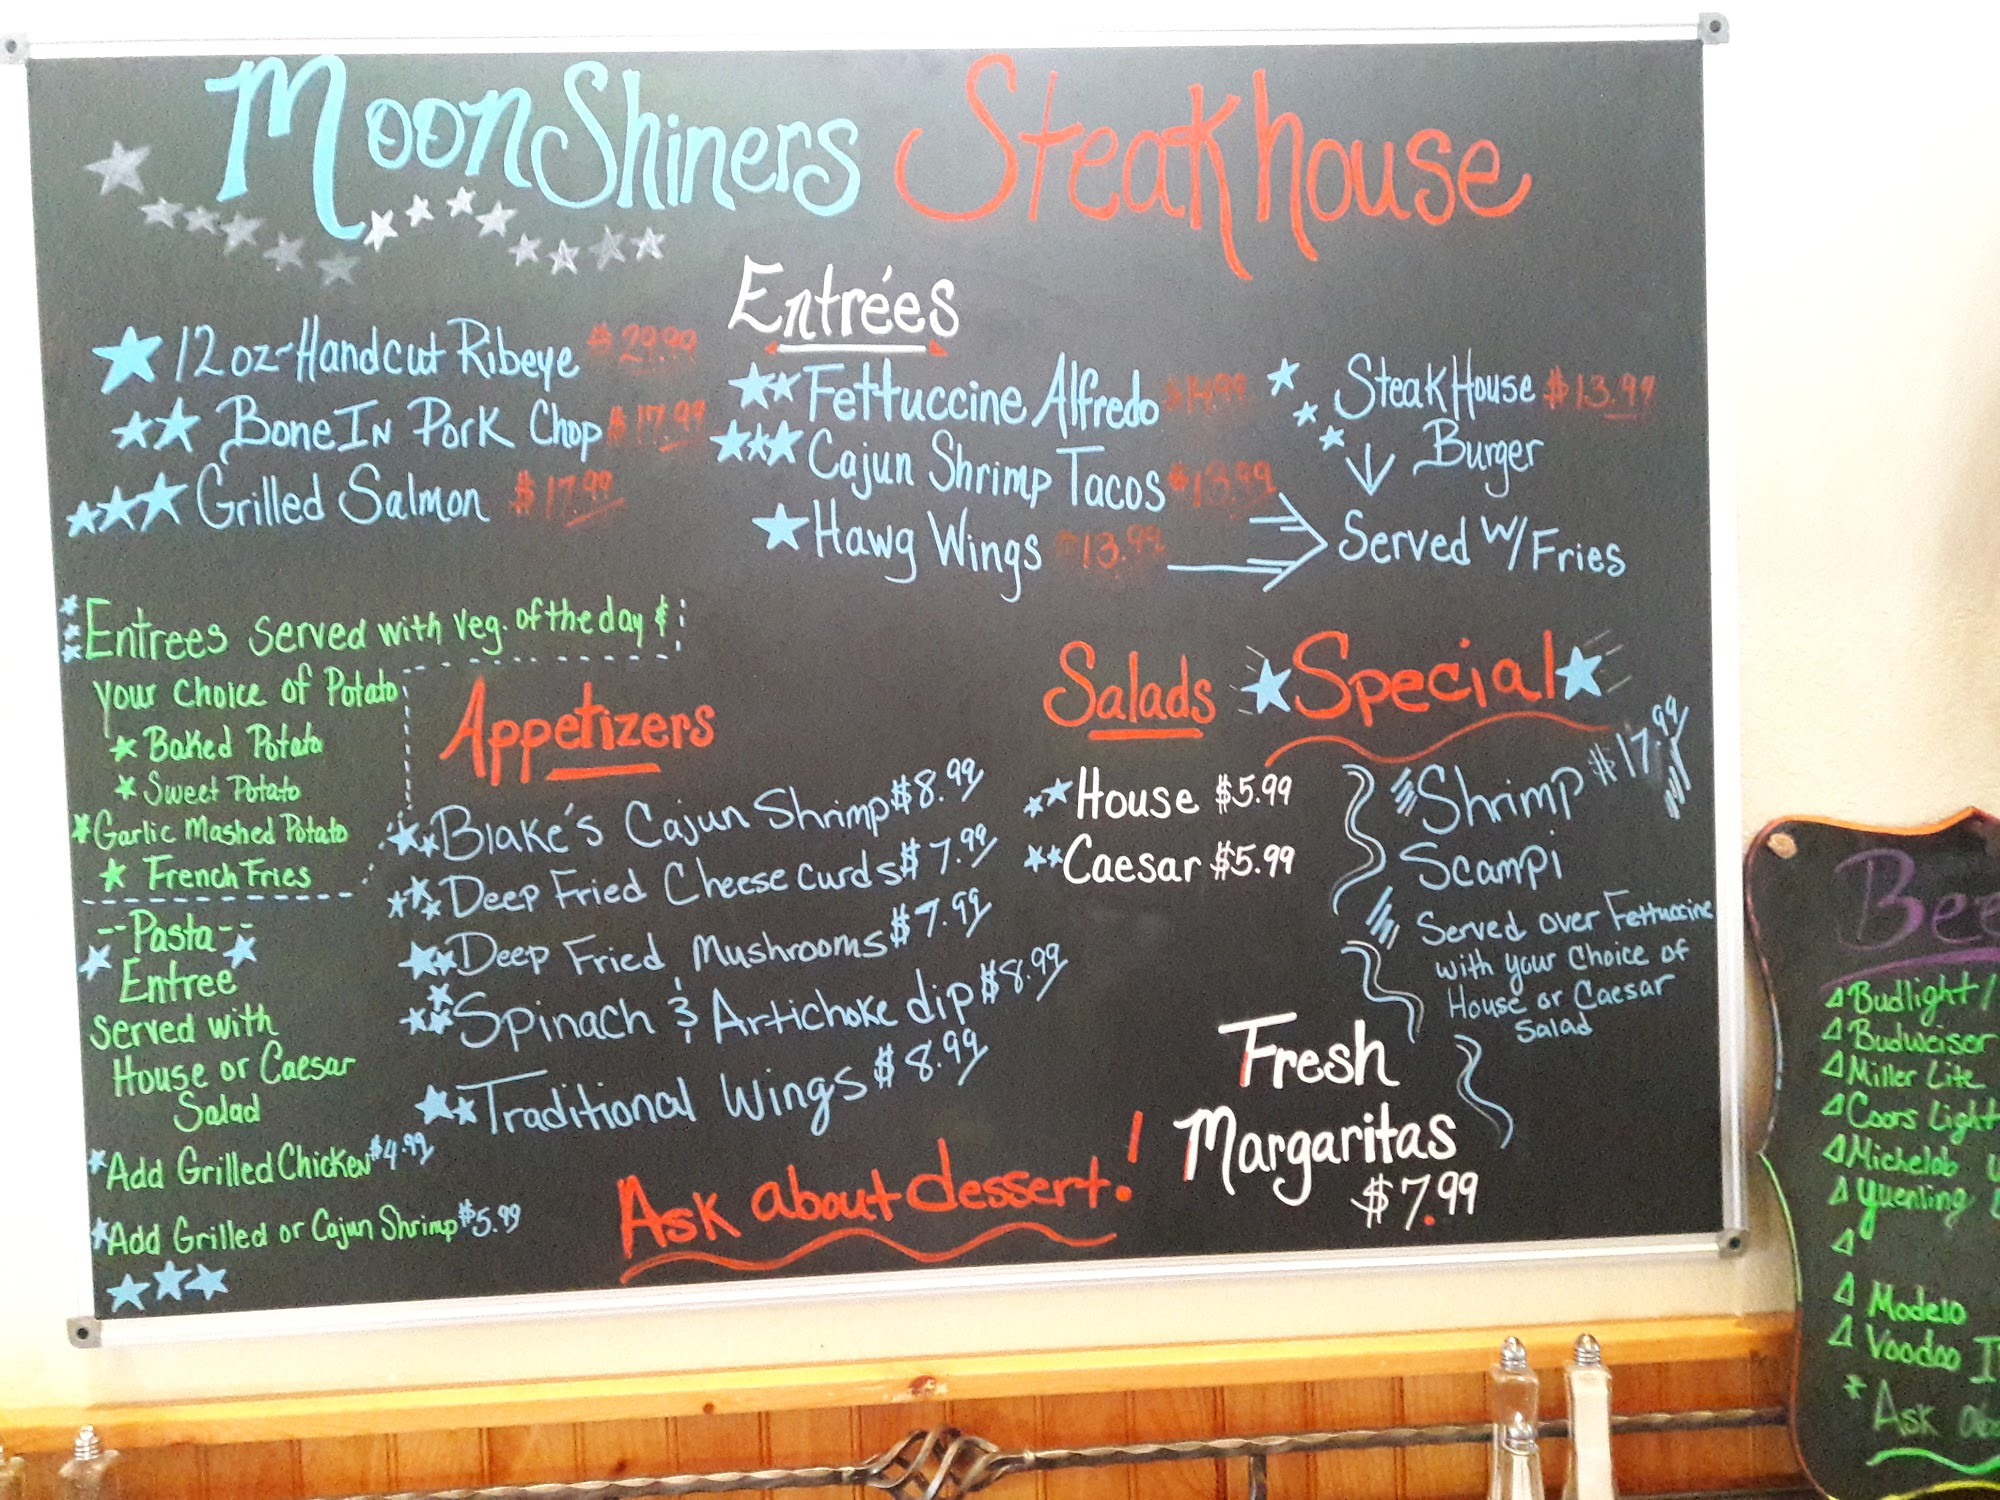 MoonShiners Steakhouse
Entrées
12oz-Handcut Ribeye $29.99
BoneIn Pork Chop $17.99
Grilled Salmon $17.99
Fettuccine Alfredo $14.99
Cajun Shrimp Tacos $13.99
Hawg Wings $13.99
SteakHouse $13.99
Burger
Served w/Fries
Entrees Served with veg. of the day &
your choice of Potato
Baked Potato
Sweet Potato
Garlic Mashed Potato
French Fries
--Pasta--
Entree
Served with
House or Caesar
Salad
Add Grilled Chicken $4.99
Add Grilled or Cajun Shrimp $5.99
Appetizers
Blake's Cajun Shrimp $8.99
Deep Fried Cheese curds $7.99
Deep Fried Mushrooms $7.99
Spinach & Artichoke dip $8.99
Traditional Wings $8.99
Ask about dessert!
Salads
House $5.99
Caesar $5.99
Special
Shrimp $17.99
Scampi
Served over Fettuccine
with your choice of
House or Caesar
Salad
Fresh
Margaritas
$7.99
Bee
Budlight/
Budweiser
Miller Lite
Coors Light
Michelob
Yuenling
Modelo
Voodoo I
Ask